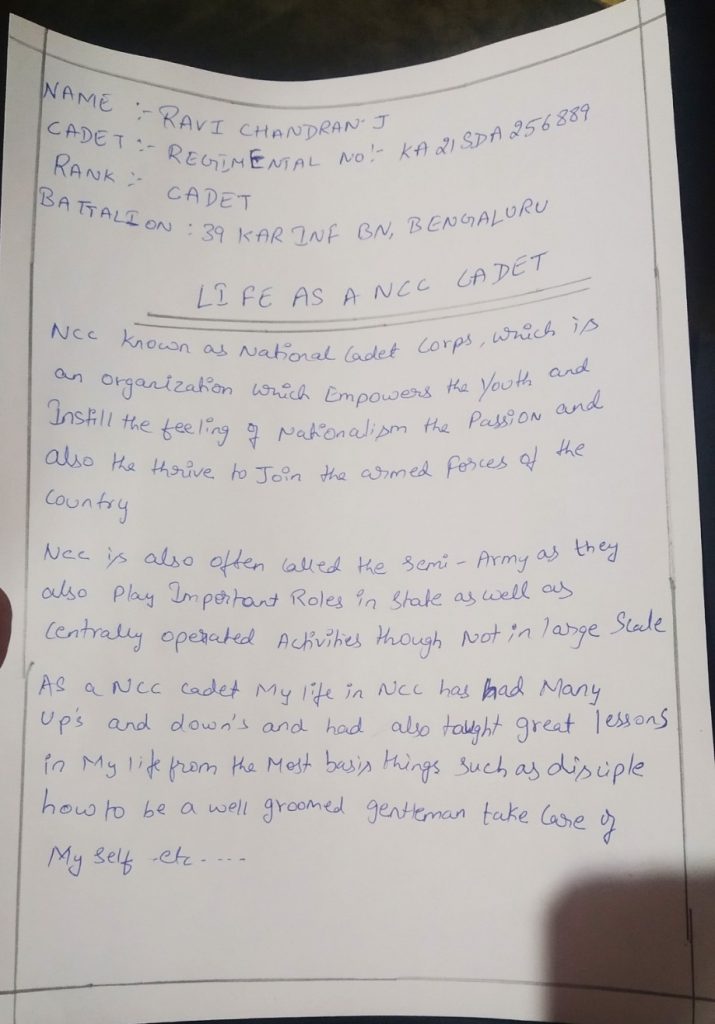 NAME :- RAVI CHANDRAN. J
CADET :- REGIMENTAL NO :- KA 21 SDA 256889
RANK :- CADET
BATTALION : 39 KAR INF BN, BENGALURU
LIFE AS A NCC CADET
NCC known as National Cadet Corps, which is
an organization which Empowers the Youth and
Instill the feeling of Nationalism the Passion and
also the thrive to Join the armed forces of the
Country
NCC is also often called the semi-Army as they
also Play Important Roles in State as well as
Centrally operated Activities though Not in large Scale
AS a NCC cadet My life in NCC has had Many
Up's and down's and had also taught great lessons
in My life from the Most basis things such as disciple
how to be a well groomed gentleman take Care of
My self etc ....